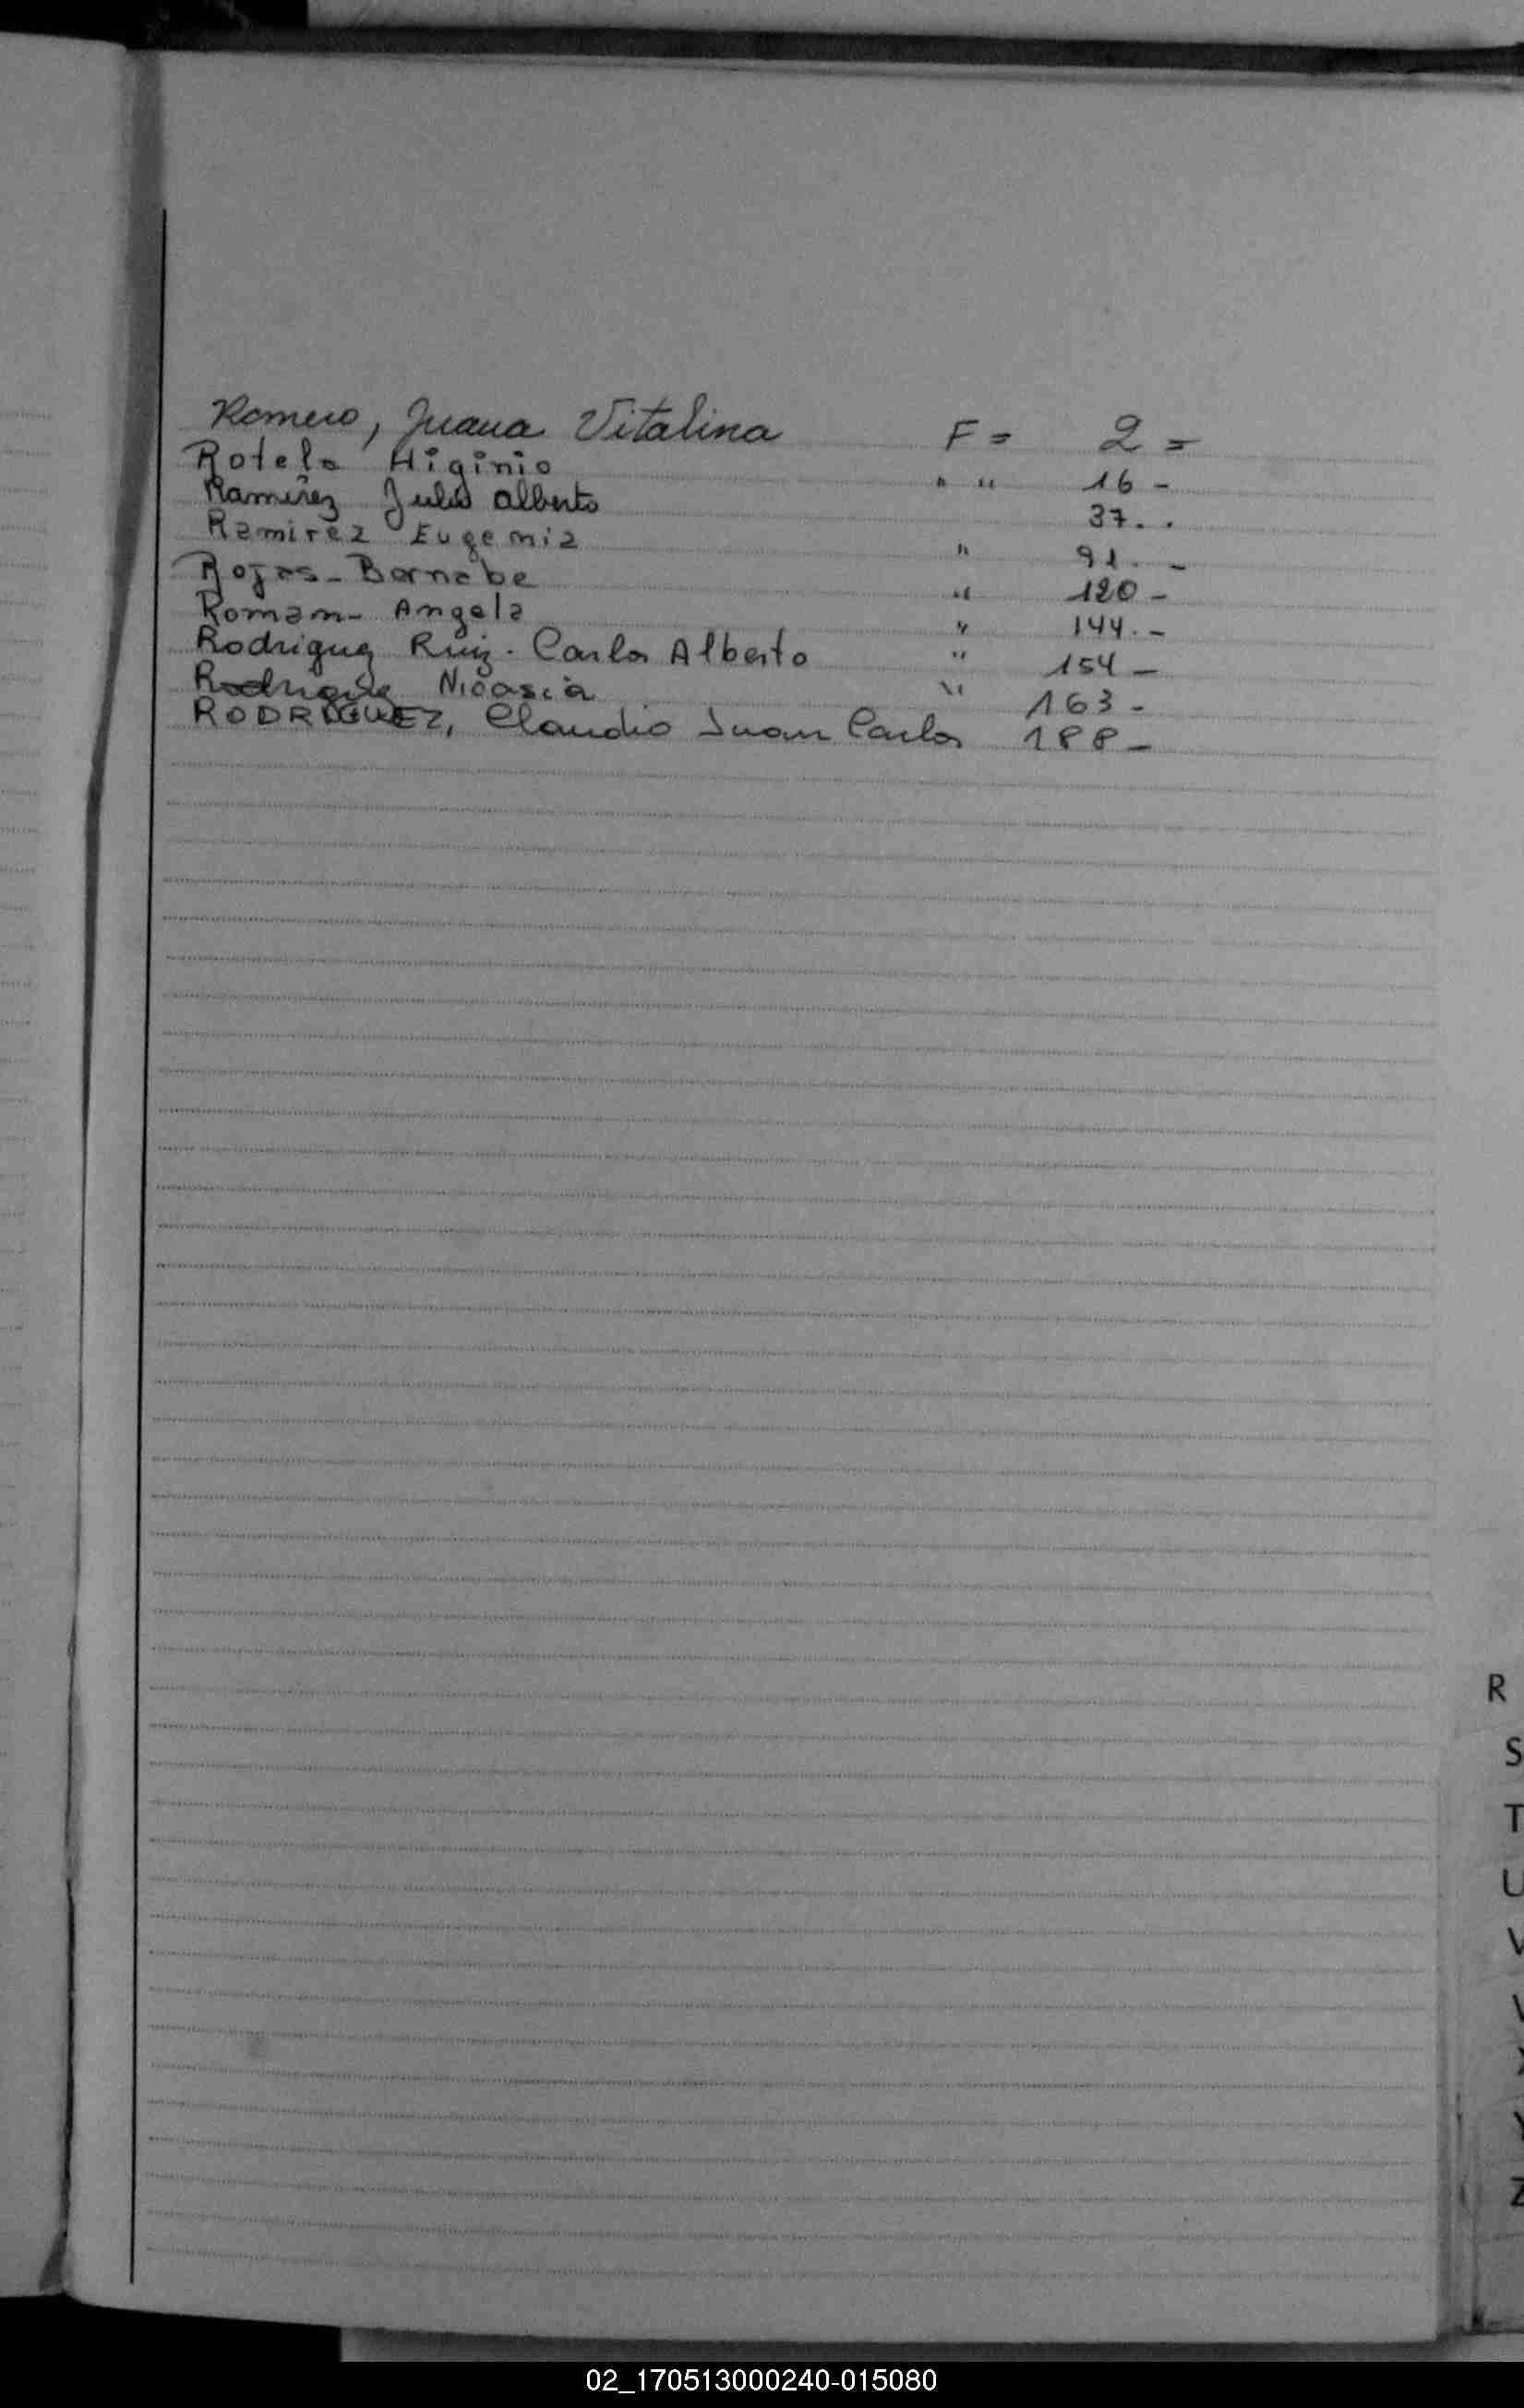 Romero, Juana Vitalina F = 2 =
Rotela Higinio " " 16 -
Ramirez Julio Alberto 37. .
Ramirez Eugemia " 91. -
Rojas - Bernabe " 120 -
Roman - Angela " 144. -
Rodriguez Ruiz - Carlos Alberto " 154 -
Rodriguez Nicasia " 163 -
RODRIGUEZ, Claudio Juan Carlos 188 -
R
S
T
U
V
Z
02_170513000240-015080